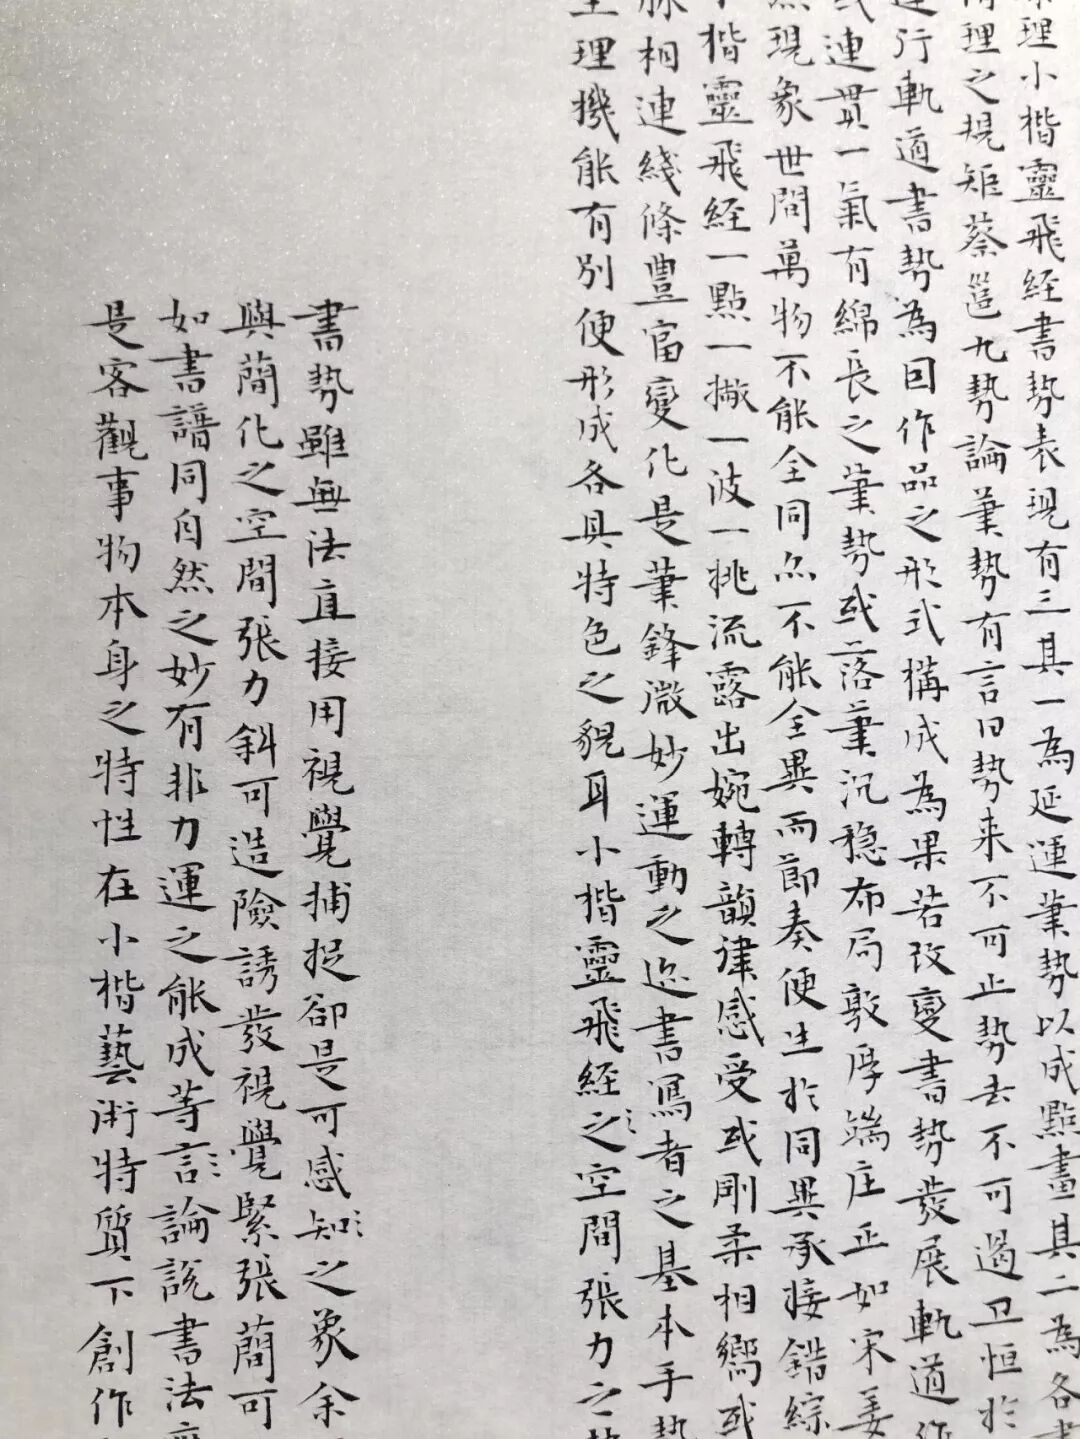 理小楷靈飛経書勢表現有三具一為延運筆勢以成點畫具二為各書
理之規矩蔡邕九勢論筆勢有言曰勢来不可止勢去不可遏卫恒於
行軌道書勢為因作品之形式構成為果若改變書勢發展軌道作
或連貫一氣有綿長之筆勢或二落筆沉穏布局敦厚端庄正如宋姜
現象世間萬物不能全同亦不能全異而節奏便生於同異承接錯綜
小楷靈飛経一點一撇一波一挑流露出婉轉韻律感受或剛柔相嚮或
脉相連綫條豊富變化是筆鋒微妙運動之迹書寫者之基本手勢
生理機能有別便形成各具特色之貌耳小楷靈飛経之空間張力之
書勢雖無法直接用視覺捕捉卻是可感知之象余
與簡化之空間張力斜可造險誘發視覺緊張簡可
如書譜同自然之妙有非力運之能成等言論說書法
是客觀事物本身之特性在小楷藝術特質下創作